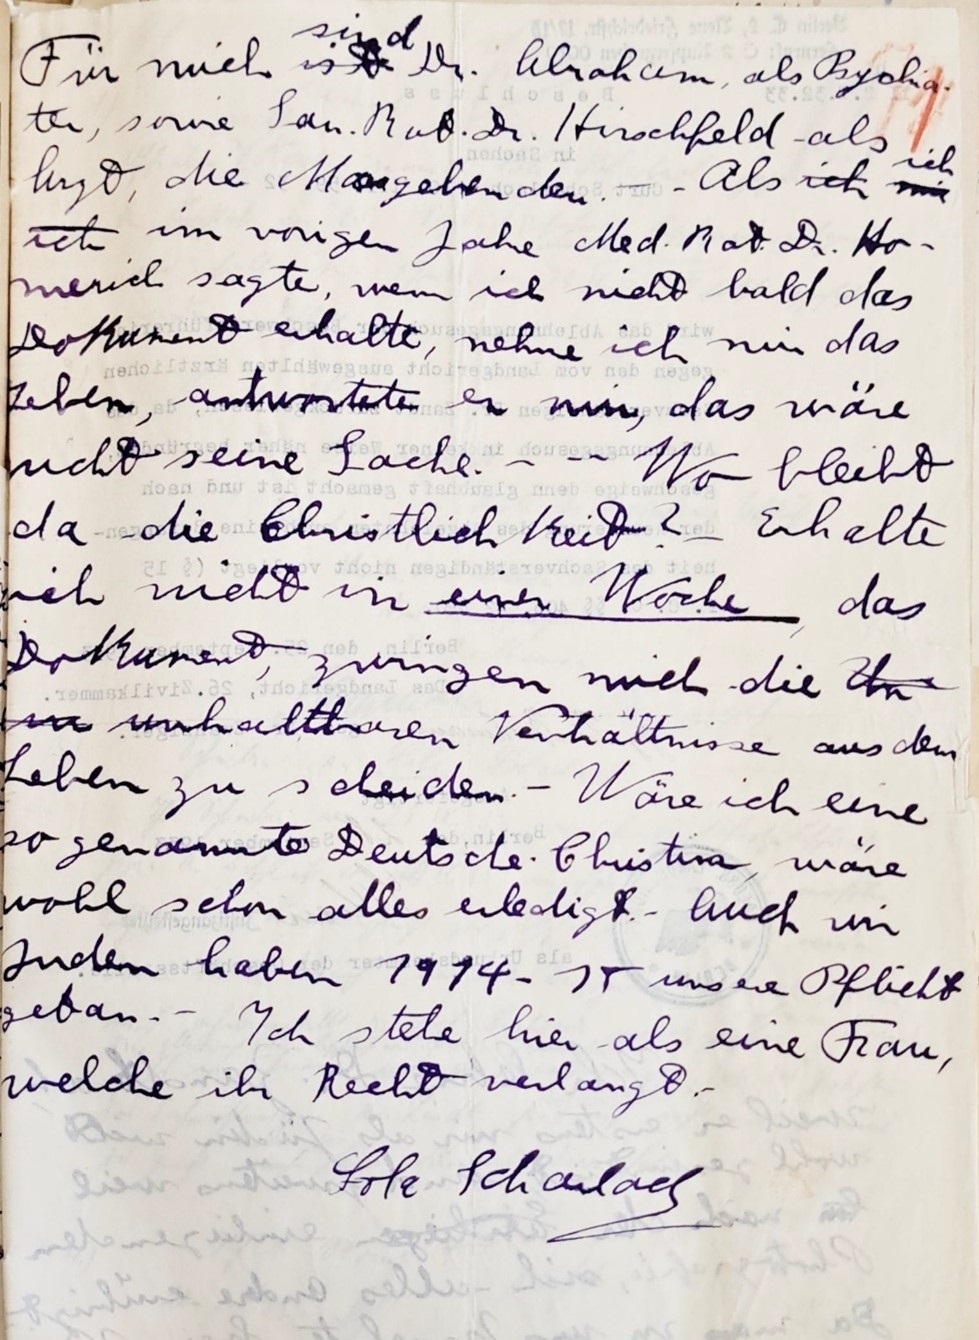 sind
Für mich ist Dr. Abraham, als Psychia-
ter, sowie San. Rat. Dr. Hirschfeld als
Arzt, die Maasgebenden. — - Als ich mir ich
ich im vorigen Jahr Med. Rat Dr. Ho-
merich sagte, wenn ich nicht bald das
Dokument erhalte, nehme ich mir das
Leben, antwortete er mir, das wäre
nicht seine Sache. - -- Wo bleibt
da die Christlichkeit? — Erhalte
ich nicht in einer Woche, das
Dokument, zwingen mich die Un-
un unhaltbaren Verhältnisse aus dem
Leben zu scheiden. - Wäre ich eine
sogenannte Deutsche Christin, wäre
wohl schon alles erledigt. - Auch wir
Juden haben 1914-18 unsere Pflicht
getan. - Ich stehe hier als eine Frau,
welche ihr Recht verlangt. -
Scharlach